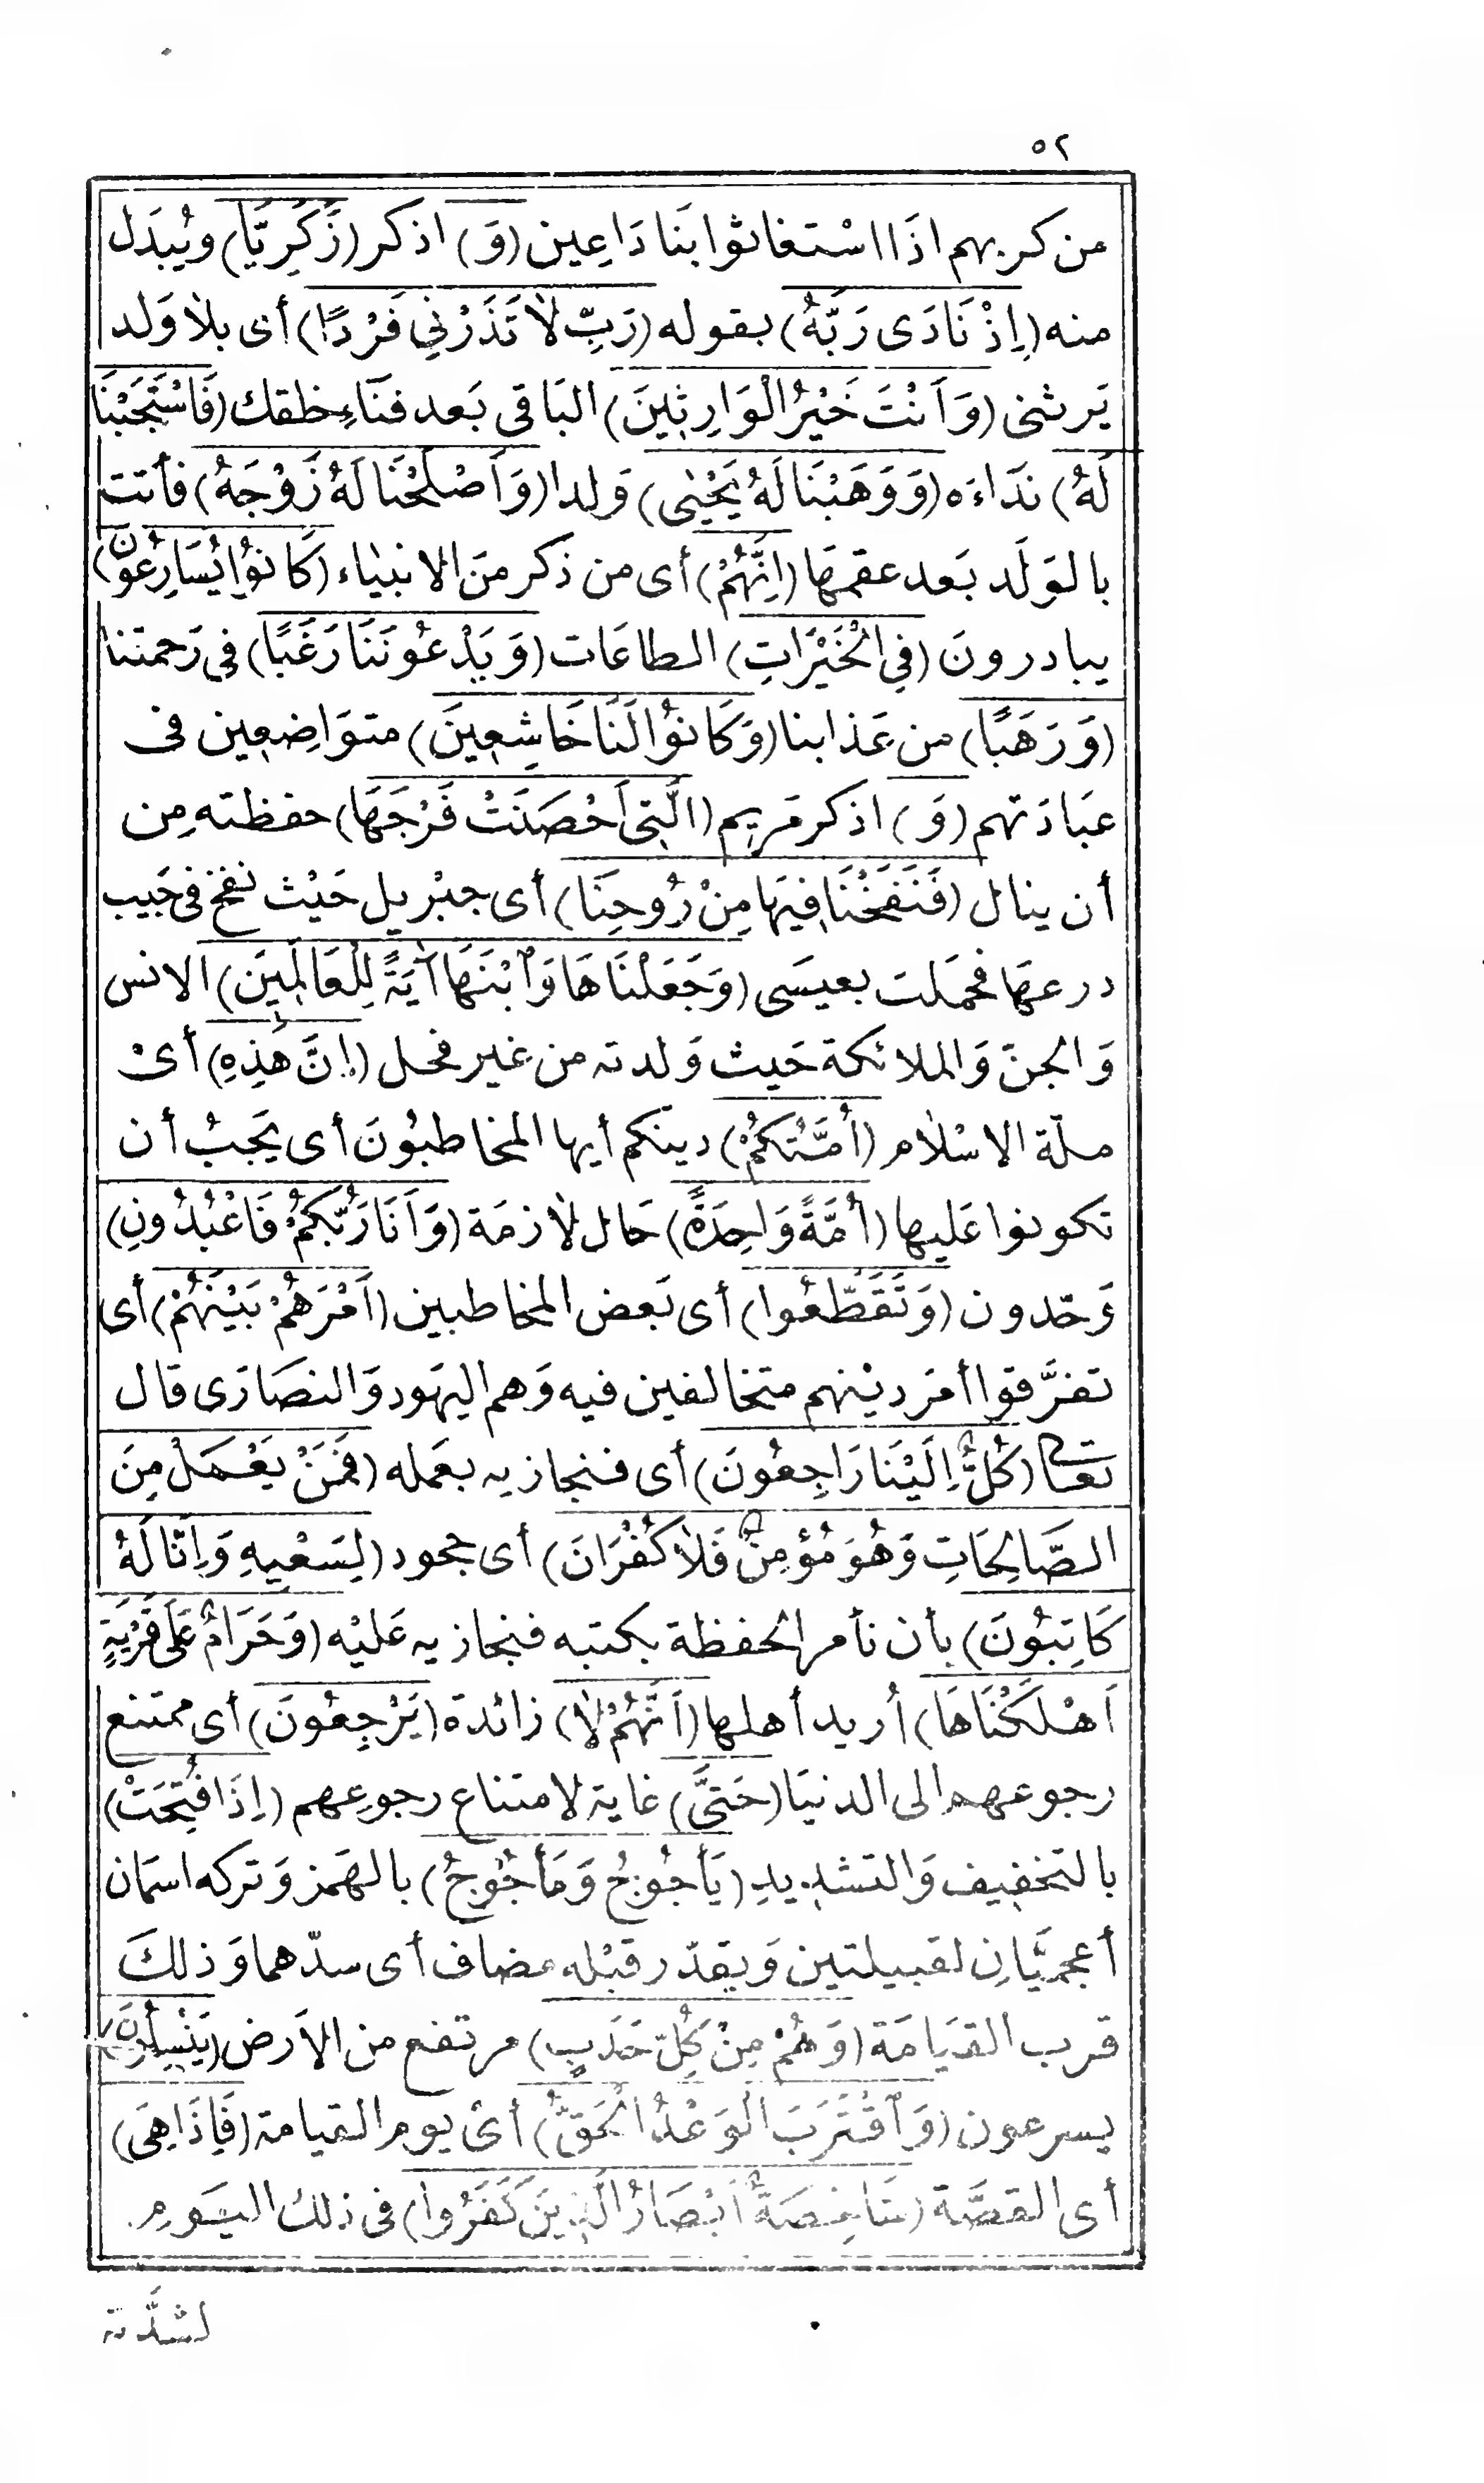 ٥٢
من كربهم اذَا اسْتغاثوا بنَا دَاعِين (وَ) اذكر (زَكَرِيَّا) ويُبدَل
منه (اِذْ نَادَى رَبَّهُ) بقوله (رَبِّ لاَ تَذَرْنِي فَرْدًا) أى بلاَ وَلد
يَرثنى (وَأَنْتَ خَيْرُ الْوَارِثِينَ) البَاقى بَعد فنَاءِ خلقك (فَاسْتَجَبْنَا
لَهُ) ندَاءَه (وَوَهَبْنَا لَهُ يَحْيٰى) وَلدا (وَأَصْلَحْنَا لَهُ زَوْجَهُ) فأتت
بالوَلَد بَعد عقمهَا (اِنَّهُمْ) أى من ذكر منَ الانبيَاء (كَانُوا يُسَارِعُونَ)
يبادرونَ (فِي الْخَيْرَاتِ) الطاعَات (وَيَدْعُونَنَا رَغَبًا) فى رَحمتنا
(وَرَهَبًا) من عَذابنا (وَكَانُوا لَنَا خَاشِعِينَ) متوَاضِعِين فى
عبَادَتهم (وَ) اذكر مَريم (الَّتِى أَحْصَنَتْ فَرْجَهَا) حفظته مِن
أن ينال (فَنَفَخْنَا فِيهَا مِنْ رُوحِنَا) أى جبْريل حَيْث نفخ فى جَيب
درعهَا فحمَلت بعيسَى (وَجَعَلْنَاهَا وَٱبْنَهَا آيَةً لِلْعَالَمِينَ) الانس
وَالجنّ وَالملائكة حَيث وَلدته من غير فحل (إِنَّ هَذِهِ) أىْ
ملّة الاسْلاَم (أُمَّتُكُمْ) دينكم أيها المخاطبُونَ أى يَجبُ أن
تكونوا عَليها (أُمَّةً وَاحِدَةً) حَال لاَزمَة (وَأَنَا رَبُّكُمْ فَاعْبُدُونِ)
وَحّدون (وَتَقَطَّعُوا) أى بَعض المخاطبين (أَمْرَهُمْ بَيْنَهُمْ) أى
تفرَّقوا أمرَ ديْنهم متخالفين فيه وَهم اليهَود وَالنصَارَى قال
تعَالى (كُلٌّ إِلَيْنَا رَاجِعُونَ) أى فنجازيه بعَمله (فَمَنْ يَعْمَلْ مِنَ
الصَّالِحَاتِ وَهُوَ مُؤْمِنٌ فَلاَ كُفْرَانَ) أى جحود (لِسَعْيِهِ وَإِنَّا لَهُ
كَاتِبُونَ) بأن نأمر الحفظة بكتبه فنجازيه عَليْه (وَحَرَامٌ عَلَى قَرْيَةٍ
أَهْلَكْنَاهَا) أُريد أهلها (أَنَّهُمْ لاَ) زائدة (يَرْجِعُونَ) أى ممتنع
رجوعهم الى الدنيَا (حَتَّى) غاية لامتناع رجوعهم (إِذَا فُتِحَتْ)
بالتخفيف وَالتشديدِ (يَأْجُوجُ وَمَأْجُوجُ) بالهَمز وَتركه اسمَان
أعجميَّانِ لقبيلتين وَيقدّر قبْله مضاف أى سدّهما وَذلكَ
قرب القيَامَة (وَهُمْ مِنْ كُلِّ حَدَبٍ) مرتفع من الاَرض (يَنْسِلُونَ)
يسرعون (وَٱقْتَرَبَ الْوَعْدُ الْحَقُّ) أىْ يوم القيامة (فَإِذَا هِىَ)
أى القصَّة (شَاخِصَةٌ أَبْصَارُ الَّذِينَ كَفَرُوا) فى ذلك اليَومِ
لشدَّته